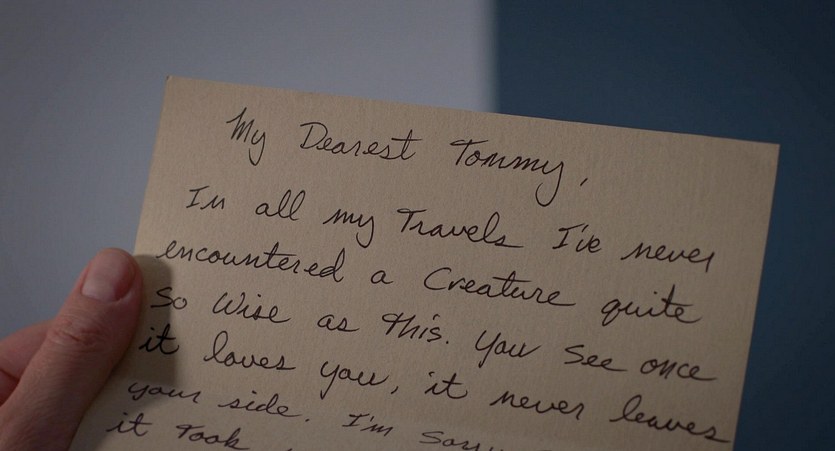 My Dearest Tommy,
In all my Travels I've never
encountered a Creature quite
So Wise as this. You See once
it loves you, it never leaves
your side. I'm Sorry
it Took